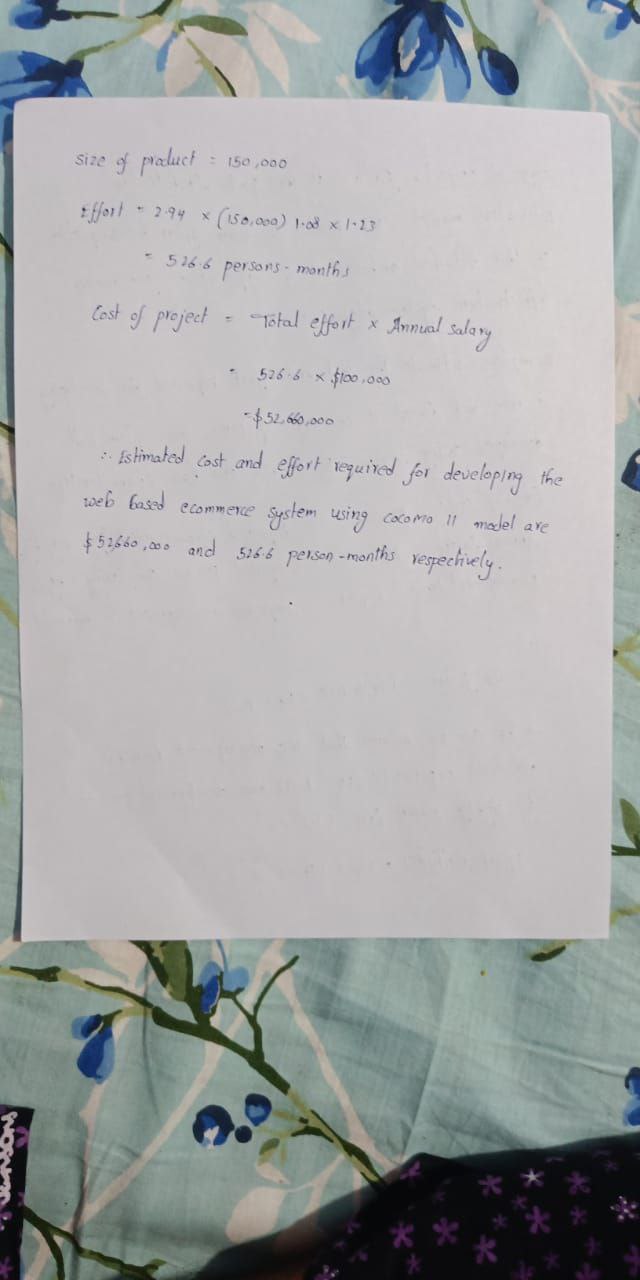 size of product = 150,000
Effort = 2.94 × (150,000) 1.08 × 1.23
= 526.6 persons-months
Cost of project = Total effort × Annual salary
= 526.6 × $100,000
= $52,660,000
∴ Estimated cost and effort required for developing the
web based ecommerce system using cocomo II model are
$52,660,000 and 526.6 person-months respectively.